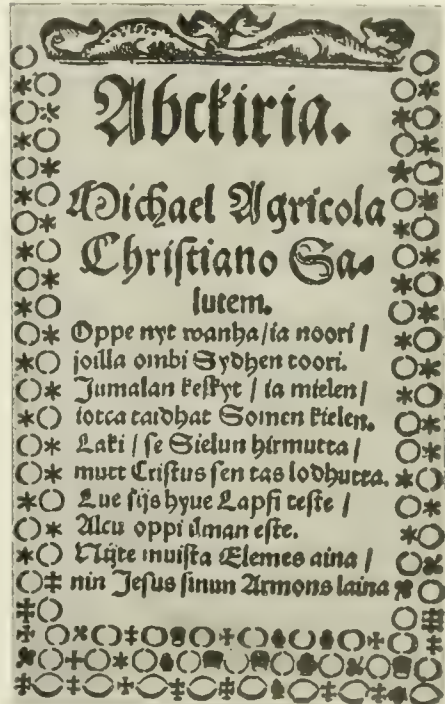 Abckiria.
Michael Agricola
Christiano Sa⸗
lutem.
Oppe nyt wanha / ia noori /
joilla ombi Sydhen toori.
Jumalan keskyt / ia mielen /
iotca taidhat Somen kielen.
Laki / se Sielun hirmutta /
mutt Cristus sen tas lodhutta.
Lue sijs hyue Lapsi teste /
Alcu oppi ilman este.
Nijte muista Elemes aina /
nin Jesus sinun Armons laina